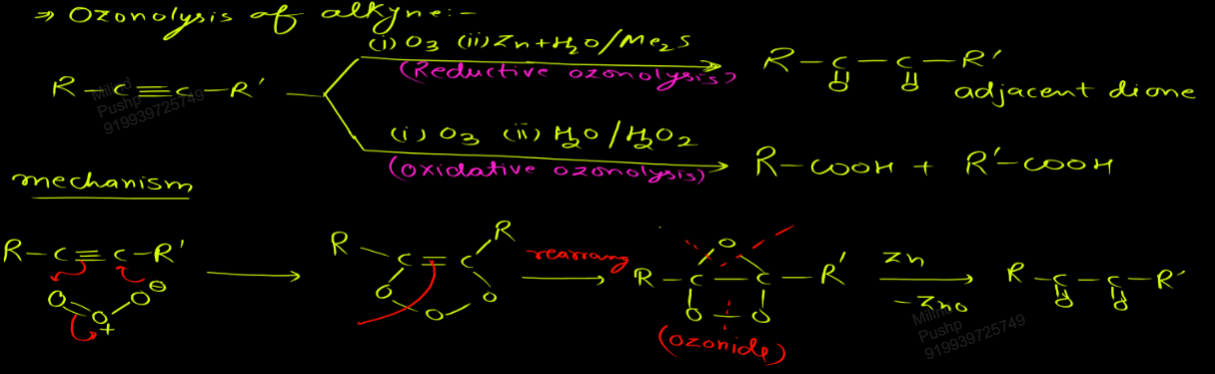 ⇒ Ozonolysis of alkyne:-
(i) O3 (ii) Zn+H2O/Me2S
(Reductive ozonolysis)
R-C-C-R'
O O
adjacent dione
R-C≡C-R'
(i) O3 (ii) H2O/H2O2
(oxidative ozonolysis)
R-COOH + R'-COOH
Milind
Pushp
919939725749
mechanism
R-C≡C-R'
O O⊖
O
+
R C=C R
O O
O
rearrang
O
R-C-C-R'
O-O
(ozonide)
Zn
-ZnO
R-C-C-R'
O O
Milind
Pushp
919939725749